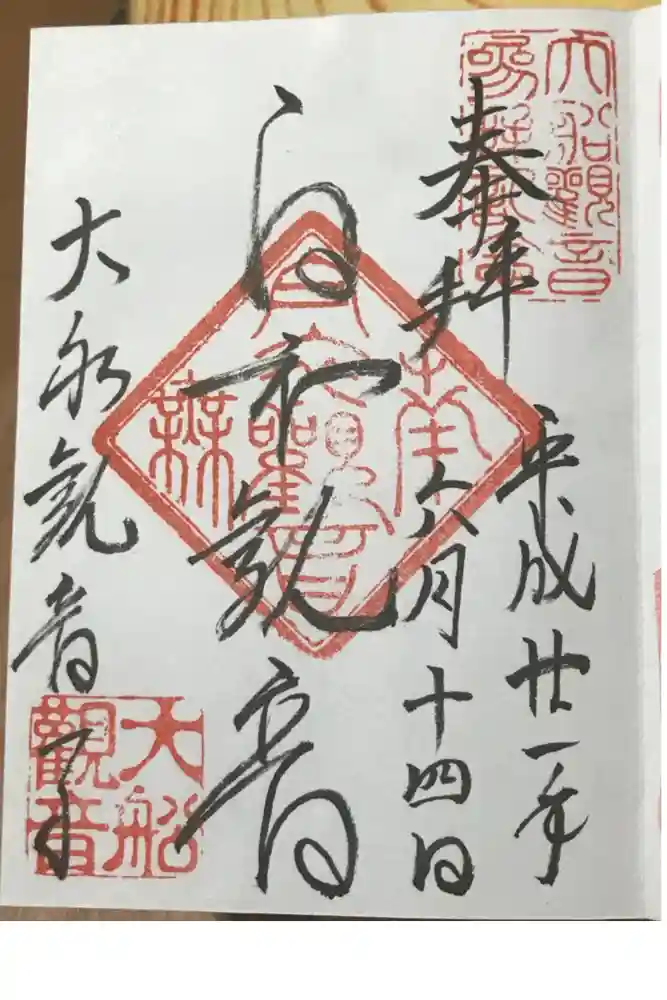 奉拝
平成廿一年
六月十四日
白衣観音
大船観音寺
大船觀音
大船
觀音